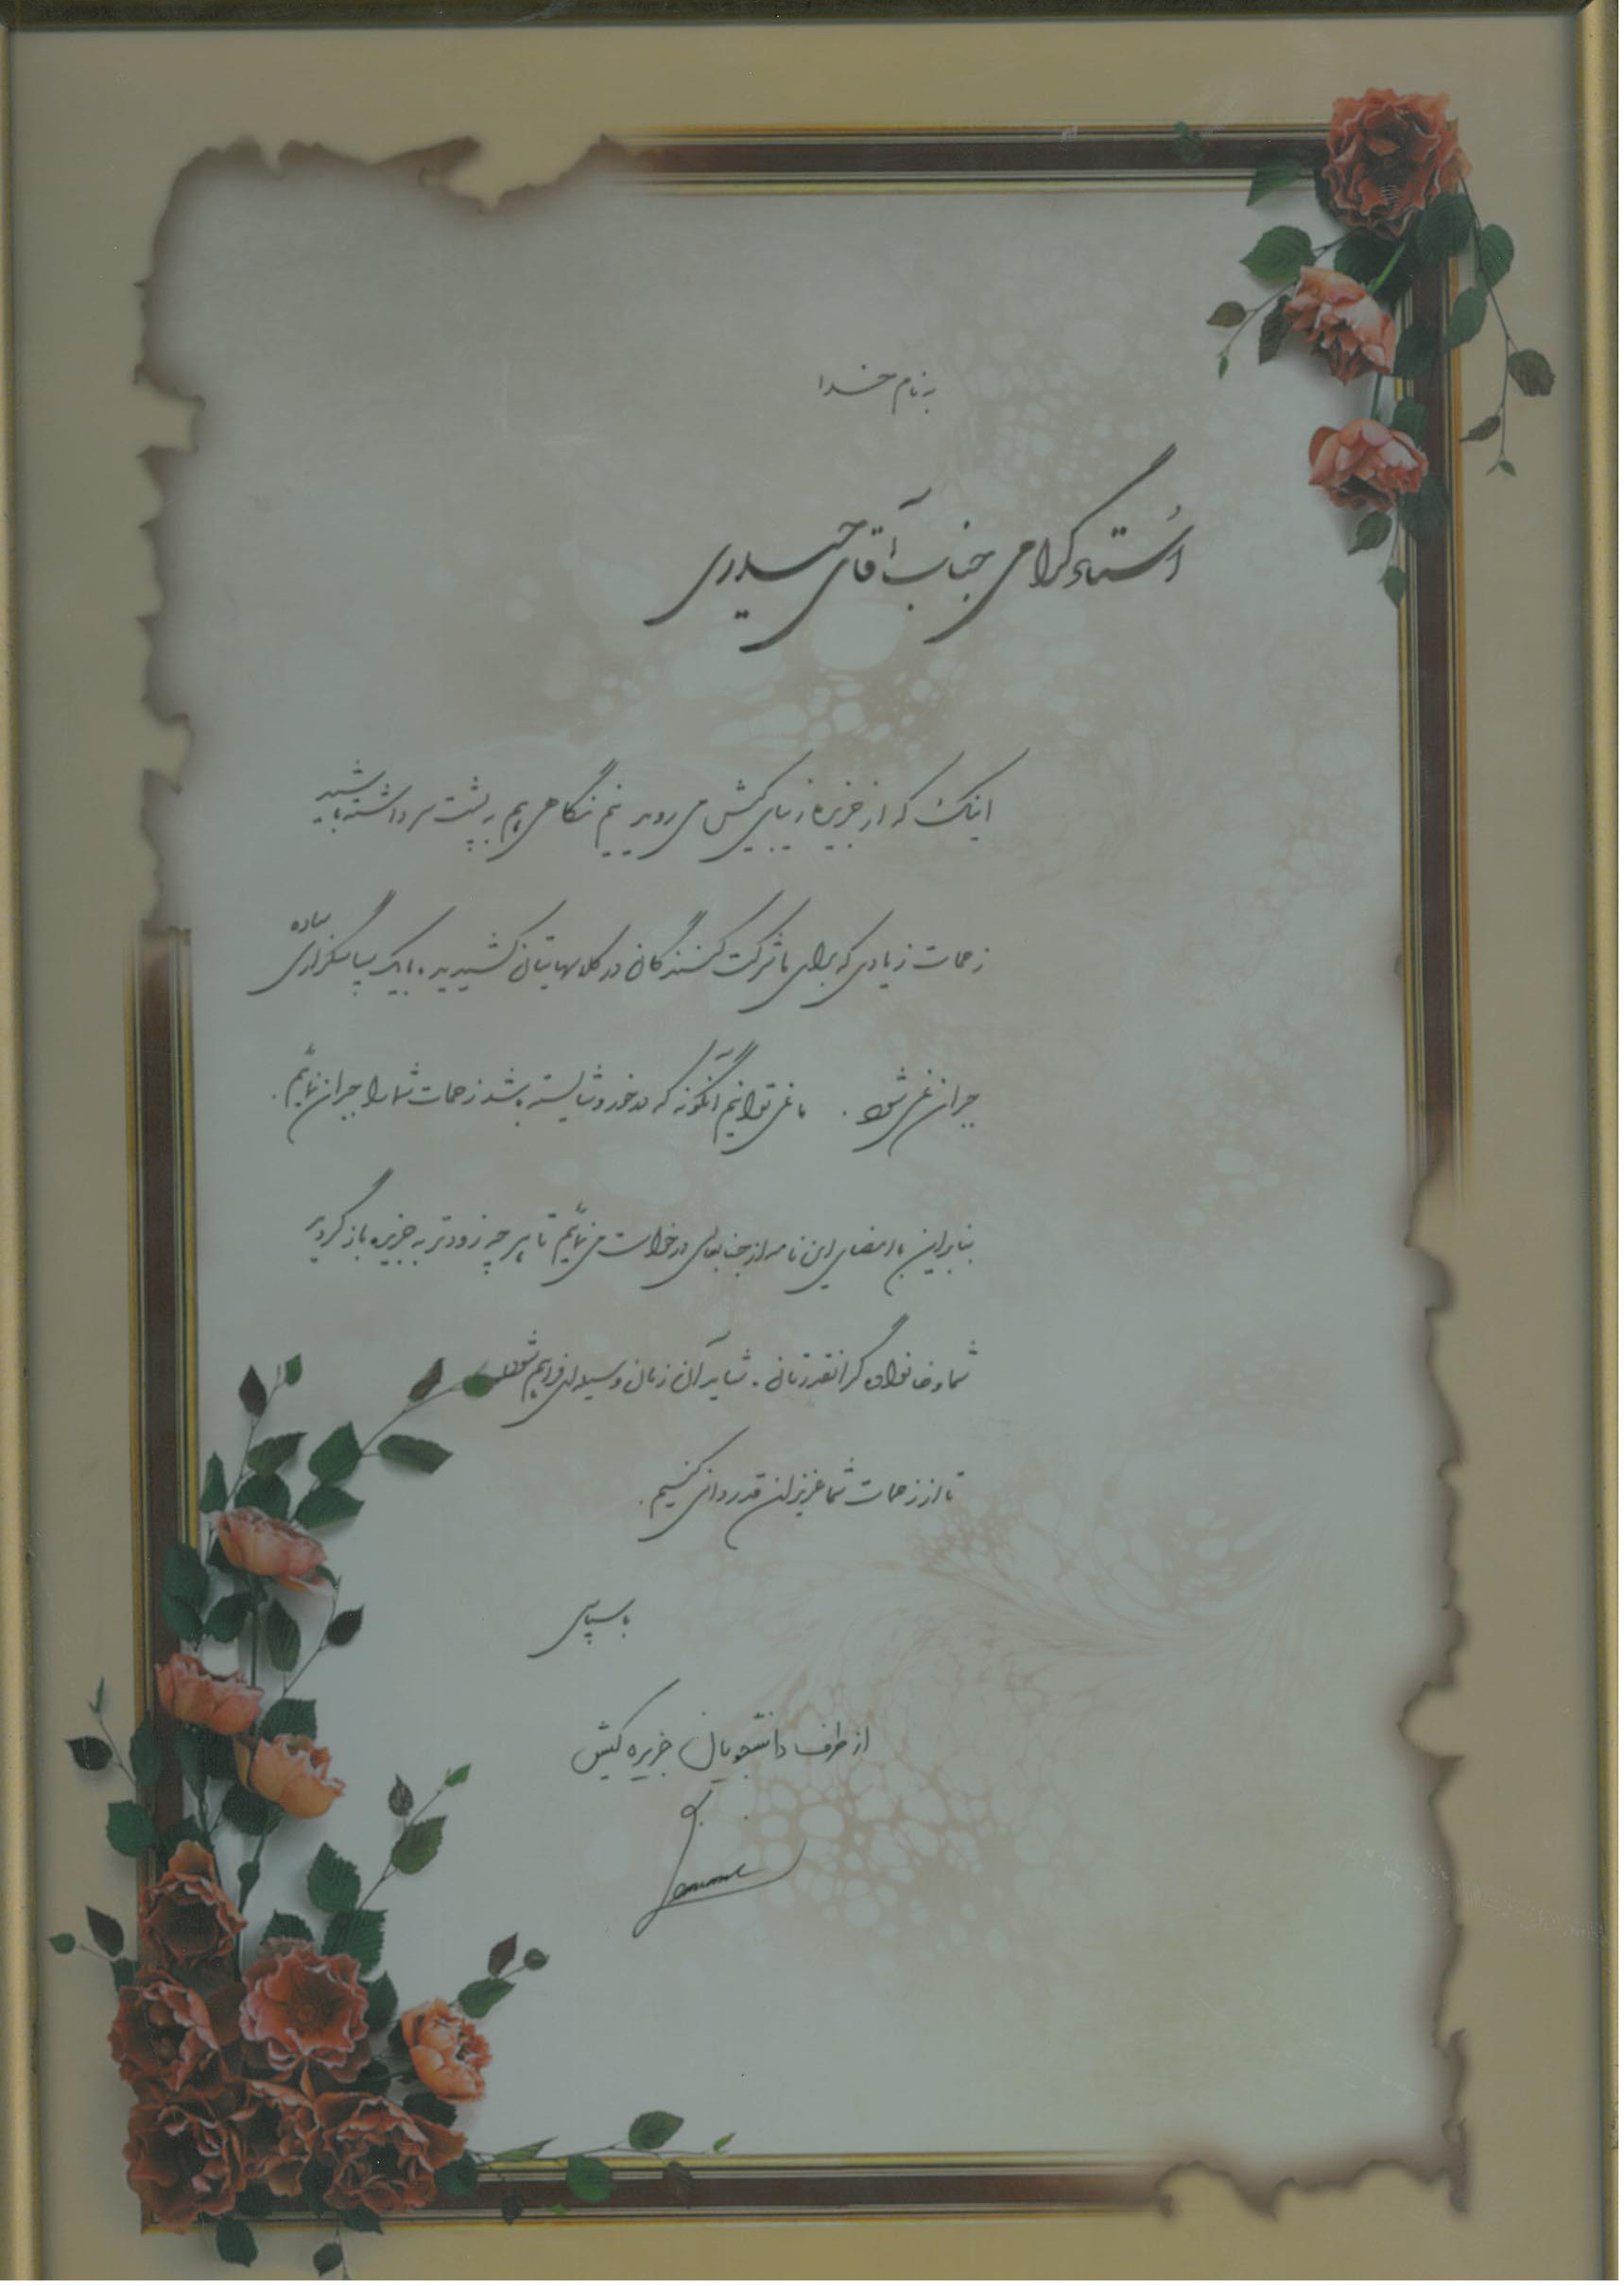 به نام خدا
اُستاد گرامی جناب آقای حیدری
اینک که از جزیره زیبای کیش می روید نیم نگاهی هم به پشت سر داشته باشید
زحمات زیادی که برای ما شرکت کنندگان در کلاسهایتان کشیدید، با یک سپاسگزاری ساده
جبران نمی شود. ما نمی توانیم آنگونه که در خور و شایسته باشد زحمات شما را جبران نمائیم.
بنابراین با امضای این نامه از جنابعالی درخواست می نمائیم تا هر چه زودتر به جزیره باز گردید
شما و خانواده گرانقدرتان. شاید آن زمان وسیله ای فراهم شود
تا از زحمات شما عزیزان قدردانی کنیم.
با سپاس
از طرف دانشجویان جزیره کیش